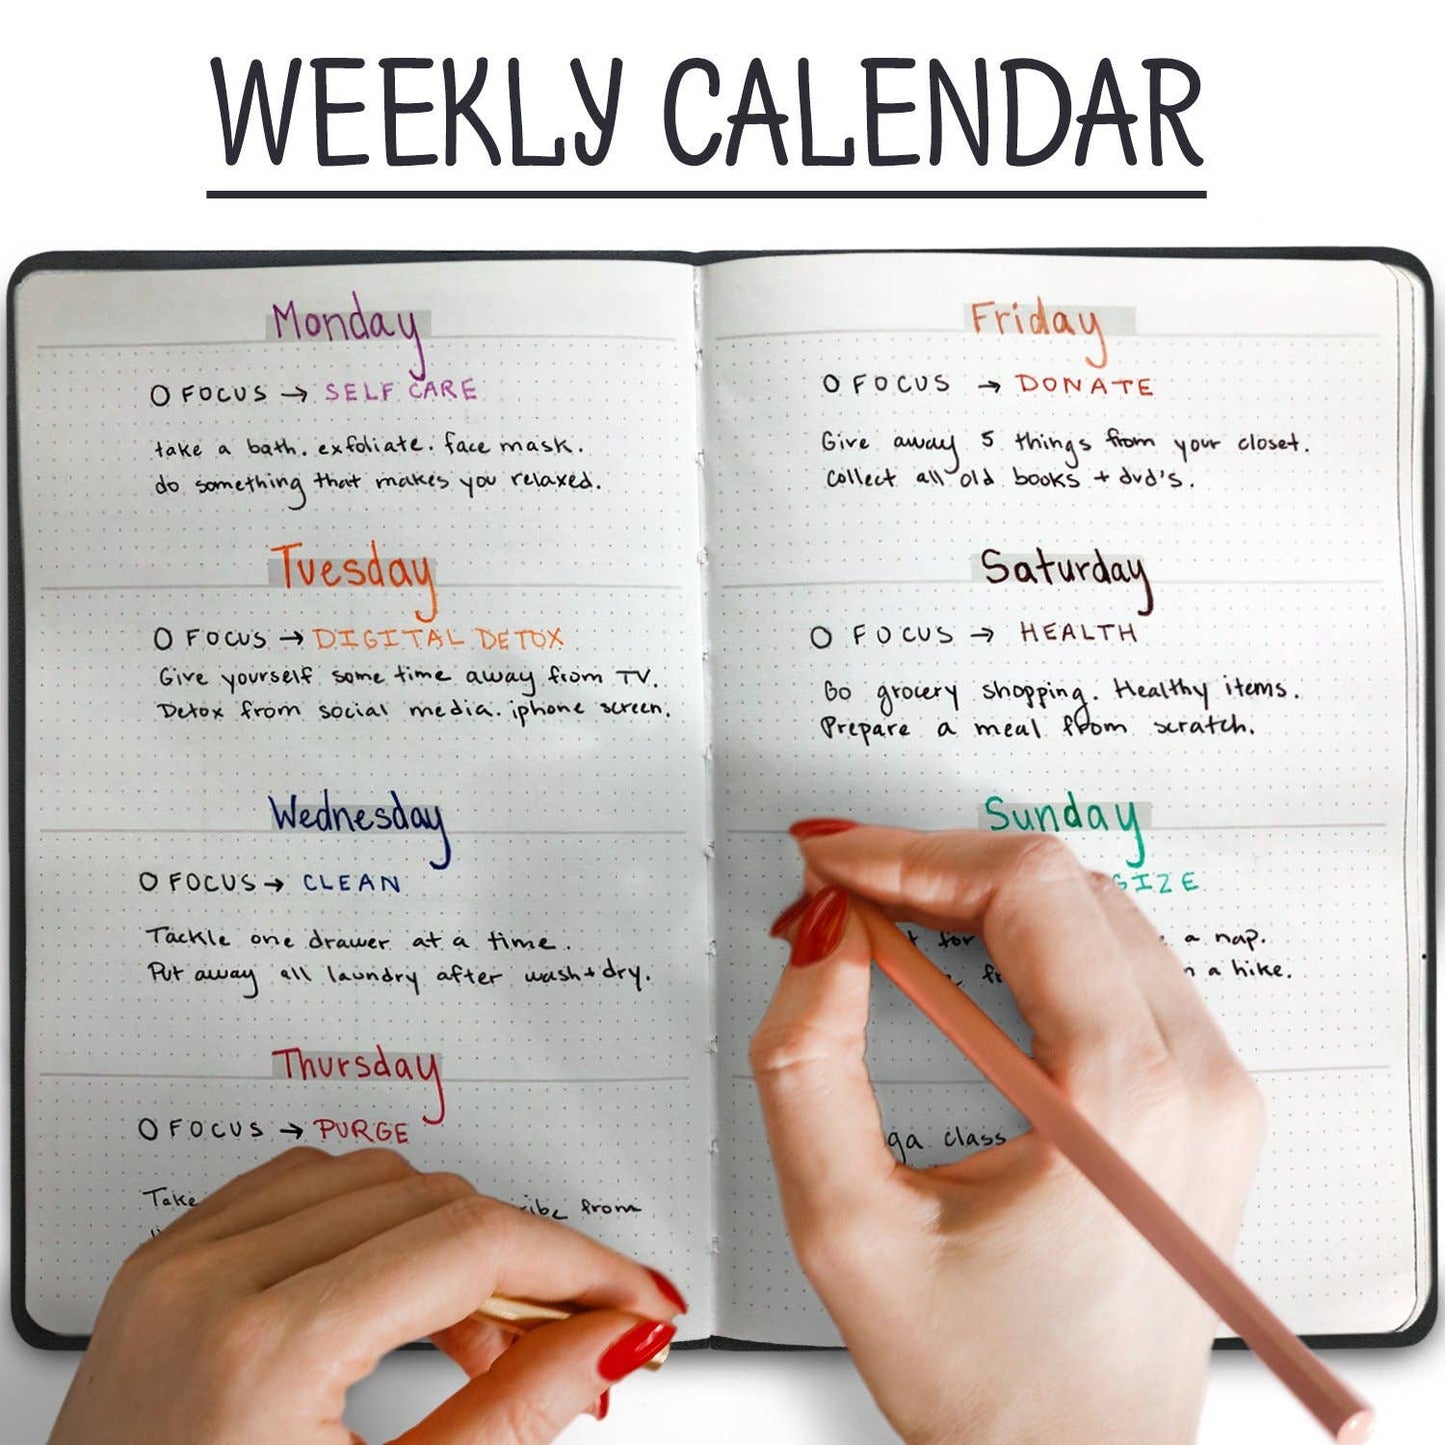 WEEKLY CALENDAR
Monday
O FOCUS → SELF CARE
take a bath. exfoliate. face mask.
do something that makes you relaxed.
Tuesday
O FOCUS → DIGITAL DETOX
Give yourself some time away from TV.
Detox from social media. iphone screen.
Wednesday
O FOCUS → CLEAN
Tackle one drawer at a time.
Put away all laundry after wash + dry.
Thursday
O FOCUS → PURGE
Take
from
Friday
O FOCUS → DONATE
Give away 5 things from your closet.
Collect all old books + dvd's.
Saturday
O FOCUS → HEALTH
Go grocery shopping. Healthy items.
Prepare a meal from scratch.
Sunday
for a nap.
a hike.
class